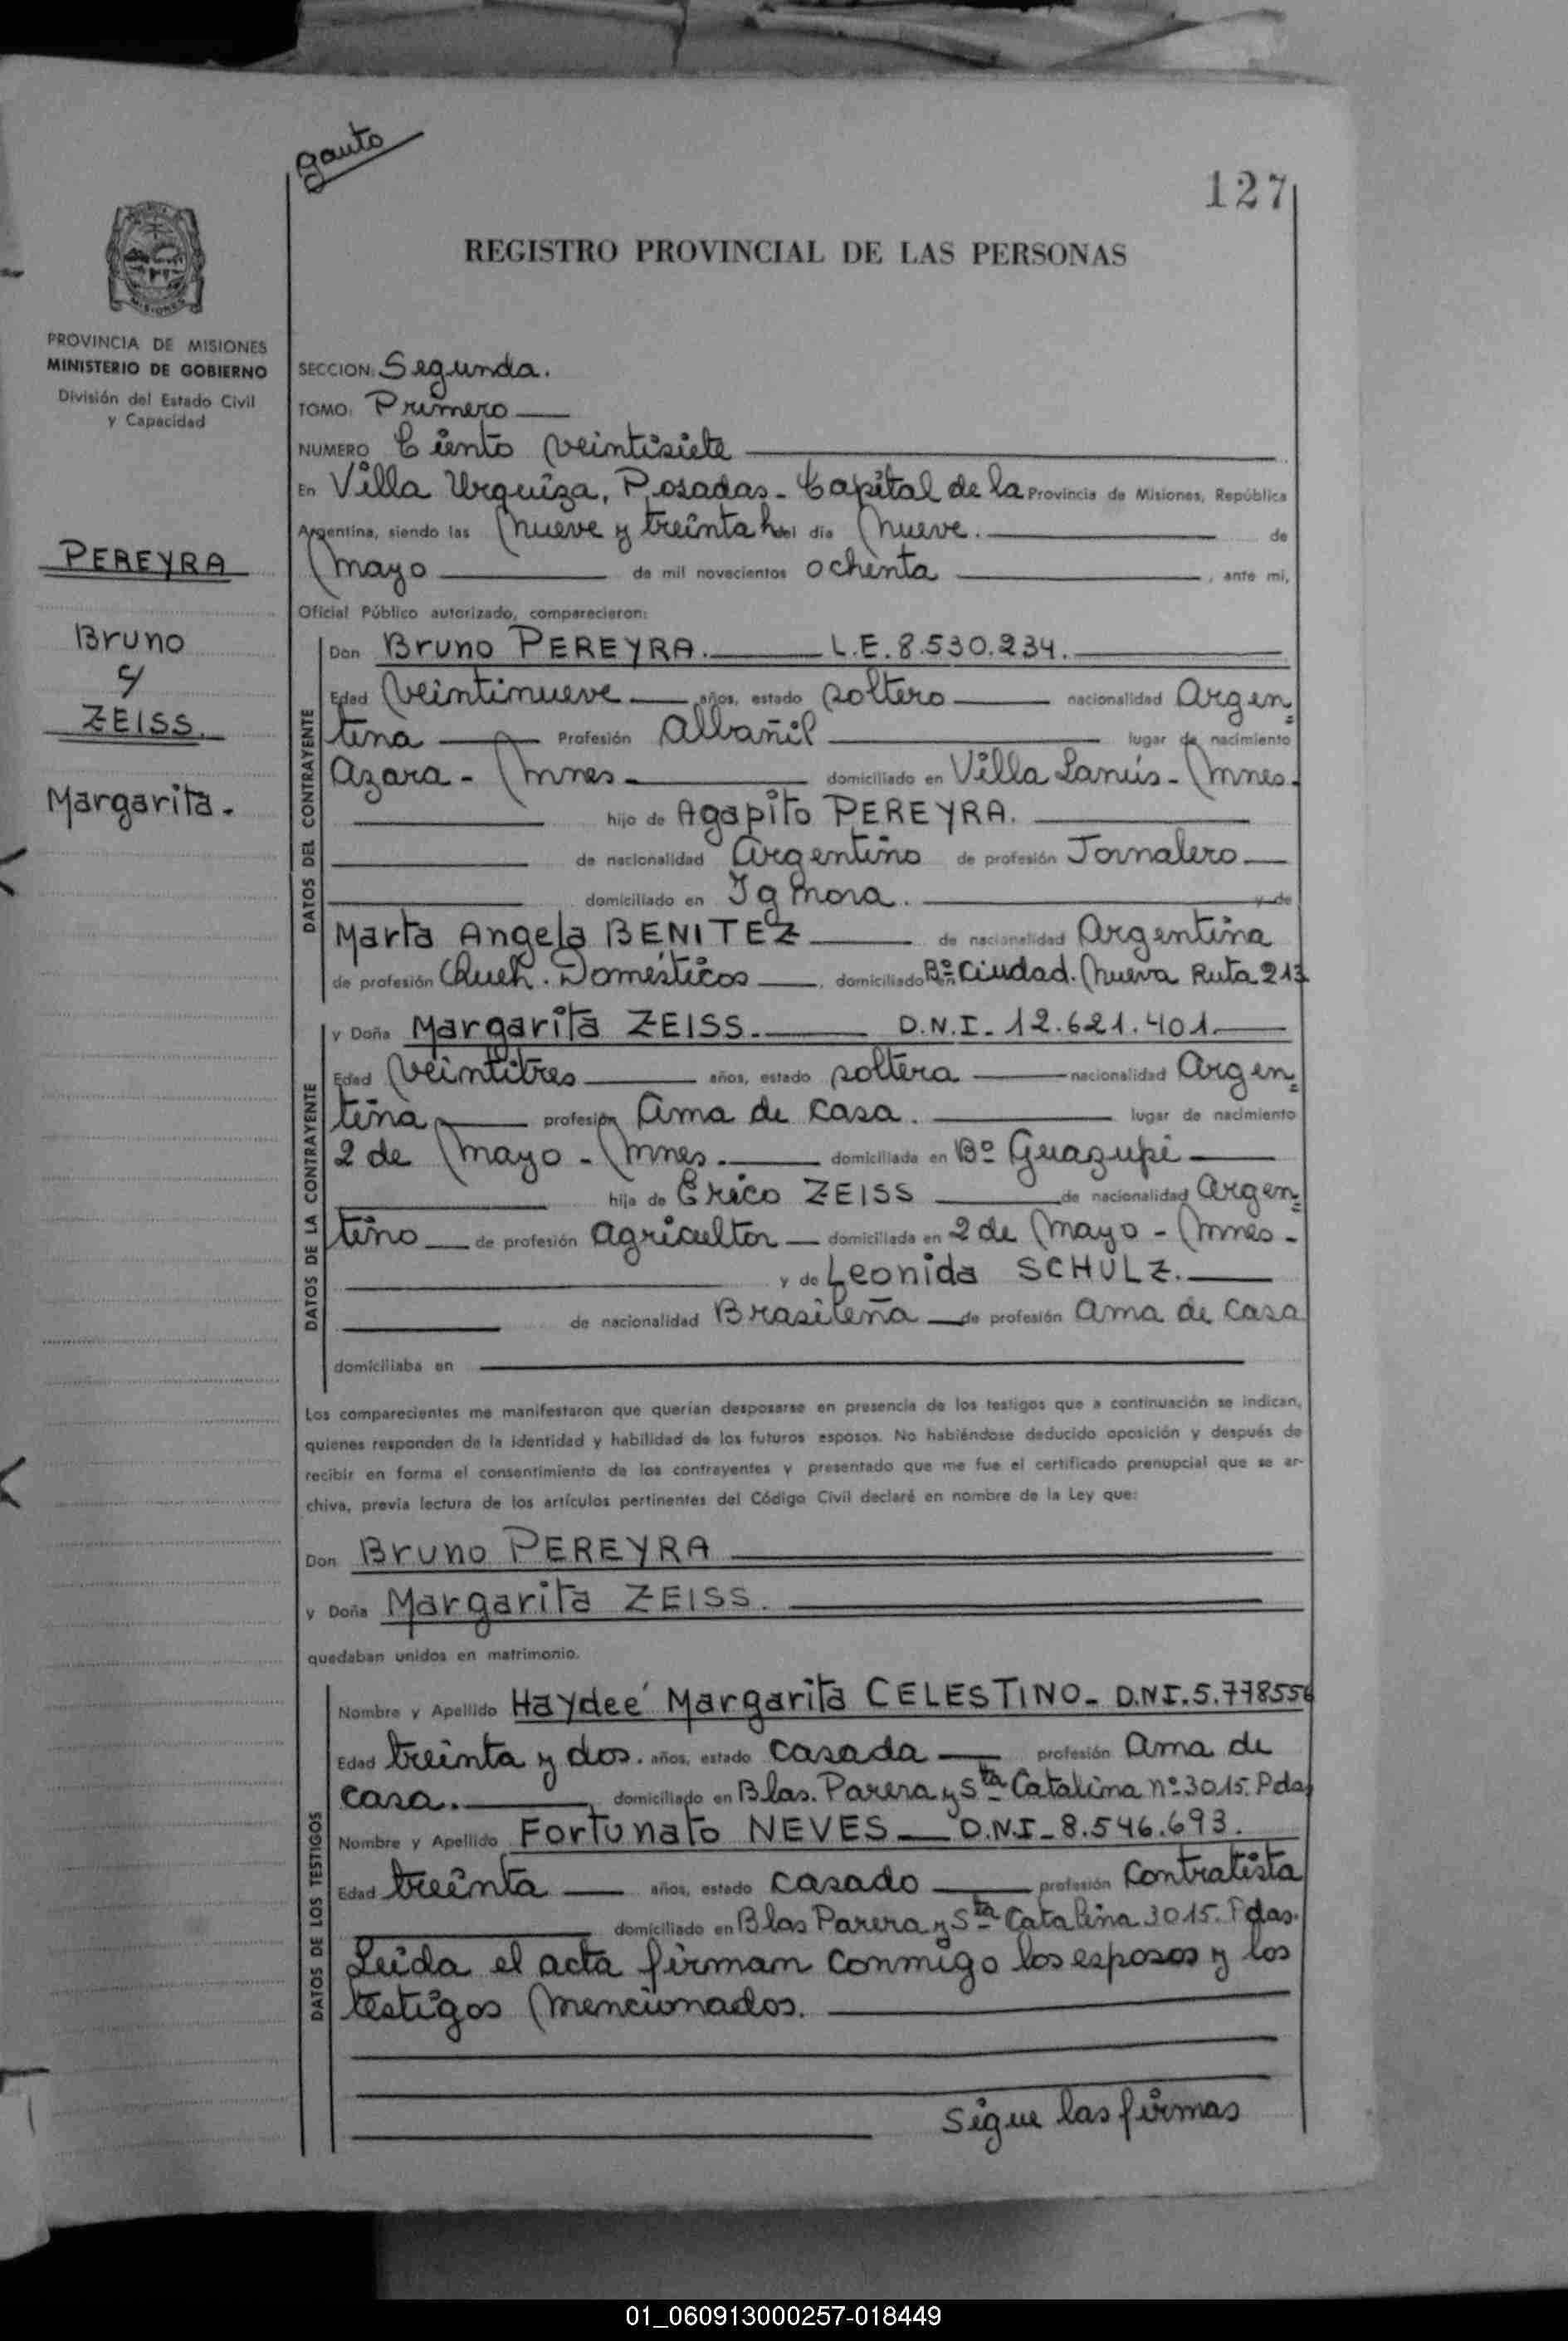 gauto
127
REGISTRO PROVINCIAL DE LAS PERSONAS
MISIONES
PROVINCIA DE MISIONES
MINISTERIO DE GOBIERNO
División del Estado Civil
y Capacidad
PEREYRA
Bruno
c/
ZEISS.
Margarita.
SECCION: Segunda.
TOMO: Primero
NUMERO Ciento veintisiete
En Villa Urquiza, Posadas - Capital de la Provincia de Misiones, República
Argentina, siendo las nueve y treinta h. del día nueve. de
mayo de mil novecientos ochenta, ante mi,
Oficial Público autorizado, comparecieron:
DATOS DEL CONTRAYENTE
Don Bruno PEREYRA. L.E. 8.530.234.
Edad veintinueve años, estado soltero nacionalidad Argen=
tina Profesión Albañil lugar de nacimiento
Azara - Mnes - domiciliado en Villa Lanús - Mnes.
hijo de Agapito PEREYRA.
de nacionalidad Argentino de profesión Jornalero
domiciliado en Ignora. y de
Marta Angela BENITEZ de nacionalidad Argentina
de profesión Queh. Domésticos, domiciliado en Bº Ciudad. Nueva Ruta 213
DATOS DE LA CONTRAYENTE
y Doña Margarita ZEISS. D.N.I. 12.621.401.
Edad veintitres años, estado soltera nacionalidad Argen=
tina profesión Ama de casa. lugar de nacimiento
2 de mayo - Mnes. domiciliada en Bº Guazupi
hija de Erico ZEISS de nacionalidad Argen=
tino de profesión agricultor domiciliada en 2 de mayo - Mnes -
y de Leonida SCHULZ.
de nacionalidad Brasileña de profesión Ama de casa
domiciliaba en
Los comparecientes me manifestaron que querían desposarse en presencia de los testigos que a continuación se indican,
quienes responden de la identidad y habilidad de los futuros esposos. No habiéndose deducido oposición y después de
recibir en forma el consentimiento de los contrayentes y presentado que me fue el certificado prenupcial que se ar-
chiva, previa lectura de los artículos pertinentes del Código Civil declaré en nombre de la Ley que:
Don Bruno PEREYRA
y Doña Margarita ZEISS.
quedaban unidos en matrimonio.
DATOS DE LOS TESTIGOS
Nombre y Apellido Haydeé Margarita CELESTINO - D.N.I. 5.778556
Edad treinta y dos. años, estado casada profesión Ama de
casa. domiciliado en Blas. Parera y Sta Catalina nº 3015. Pdas
Nombre y Apellido Fortunato NEVES D.N.I - 8.546.693.
Edad treinta años, estado casado profesión Contratista
domiciliado en Blas Parera y Sta Catalina 3015. Pdas.
Leida el acta firman conmigo los esposos y los
testigos mencionados.
Sigue las firmas
01_060913000257-018449